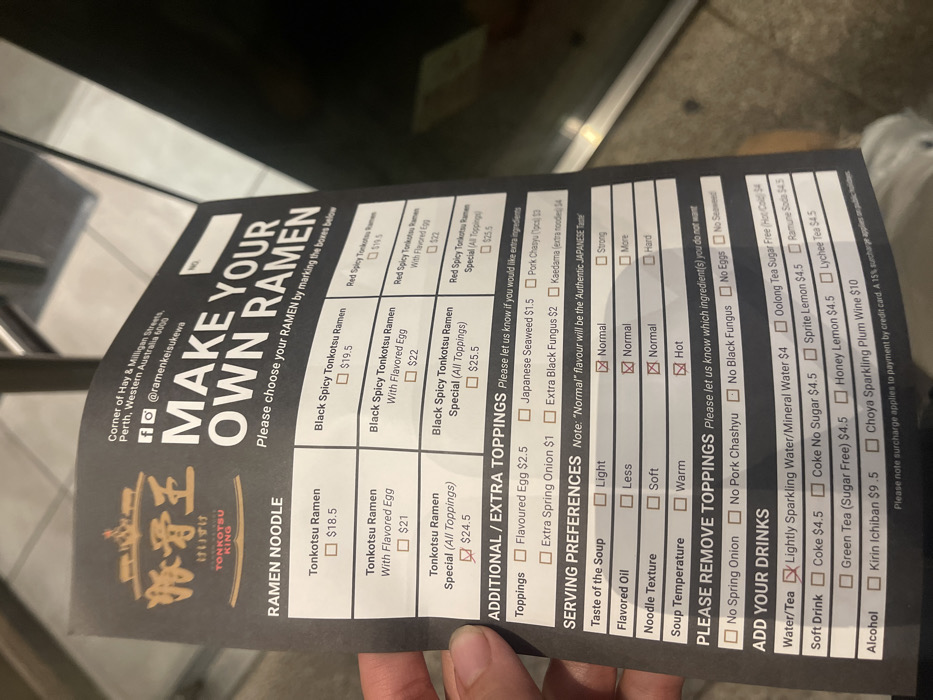 豚骨王
けいすけ
TONKOTSU
KING
Corner of Hay & Milligan Streets,
Perth, Western Australia 6000
@ramenkeisukewa
NO.
MAKE YOUR
OWN RAMEN
Please choose your RAMEN by marking the boxes below
RAMEN NOODLE
Tonkotsu Ramen
$18.5
Black Spicy Tonkotsu Ramen
$19.5
Red Spicy Tonkotsu Ramen
$19.5
Tonkotsu Ramen
With Flavored Egg
$21
Black Spicy Tonkotsu Ramen
With Flavored Egg
$22
Red Spicy Tonkotsu Ramen
With Flavored Egg
$22
Tonkotsu Ramen
Special (All Toppings)
$24.5
Black Spicy Tonkotsu Ramen
Special (All Toppings)
$25.5
Red Spicy Tonkotsu Ramen
Special (All Toppings)
$25.5
ADDITIONAL / EXTRA TOPPINGS Please let us know if you would like extra ingredients
Toppings Flavoured Egg $2.5 Japanese Seaweed $1.5 Pork Chasyu (1pcs) $3
Extra Spring Onion $1 Extra Black Fungus $2 Kaedama (extra noodles) $4
SERVING PREFERENCES Note: "Normal" flavour will be the 'Authentic JAPANESE Taste'
Taste of the Soup Light Normal Strong
Flavored Oil Less Normal More
Noodle Texture Soft Normal Hard
Soup Temperature Warm Hot
PLEASE REMOVE TOPPINGS Please let us know which ingredient(s) you do not want
No Spring Onion No Pork Chashyu No Black Fungus No Eggs No Seaweed
ADD YOUR DRINKS
Water/Tea Lightly Sparkling Water/Mineral Water $4 Oolong Tea Sugar Free (Hot/Cold) $4
Soft Drink Coke $4.5 Coke No Sugar $4.5 Sprite Lemon $4.5 Ramune Soda $4.5
Green Tea (Sugar Free) $4.5 Honey Lemon $4.5 Lychee Tea $4.5
Alcohol Kirin Ichiban $9.5 Choya Sparkling Plum Wine $10
Please note surcharge applies to payment by credit card. A 15% surcharge